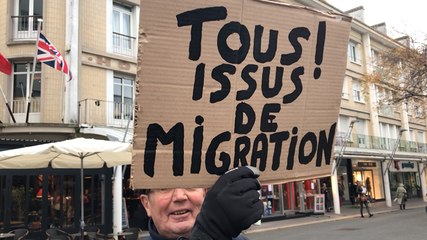 TOUS!
ISSUS
DE
MIGRATION